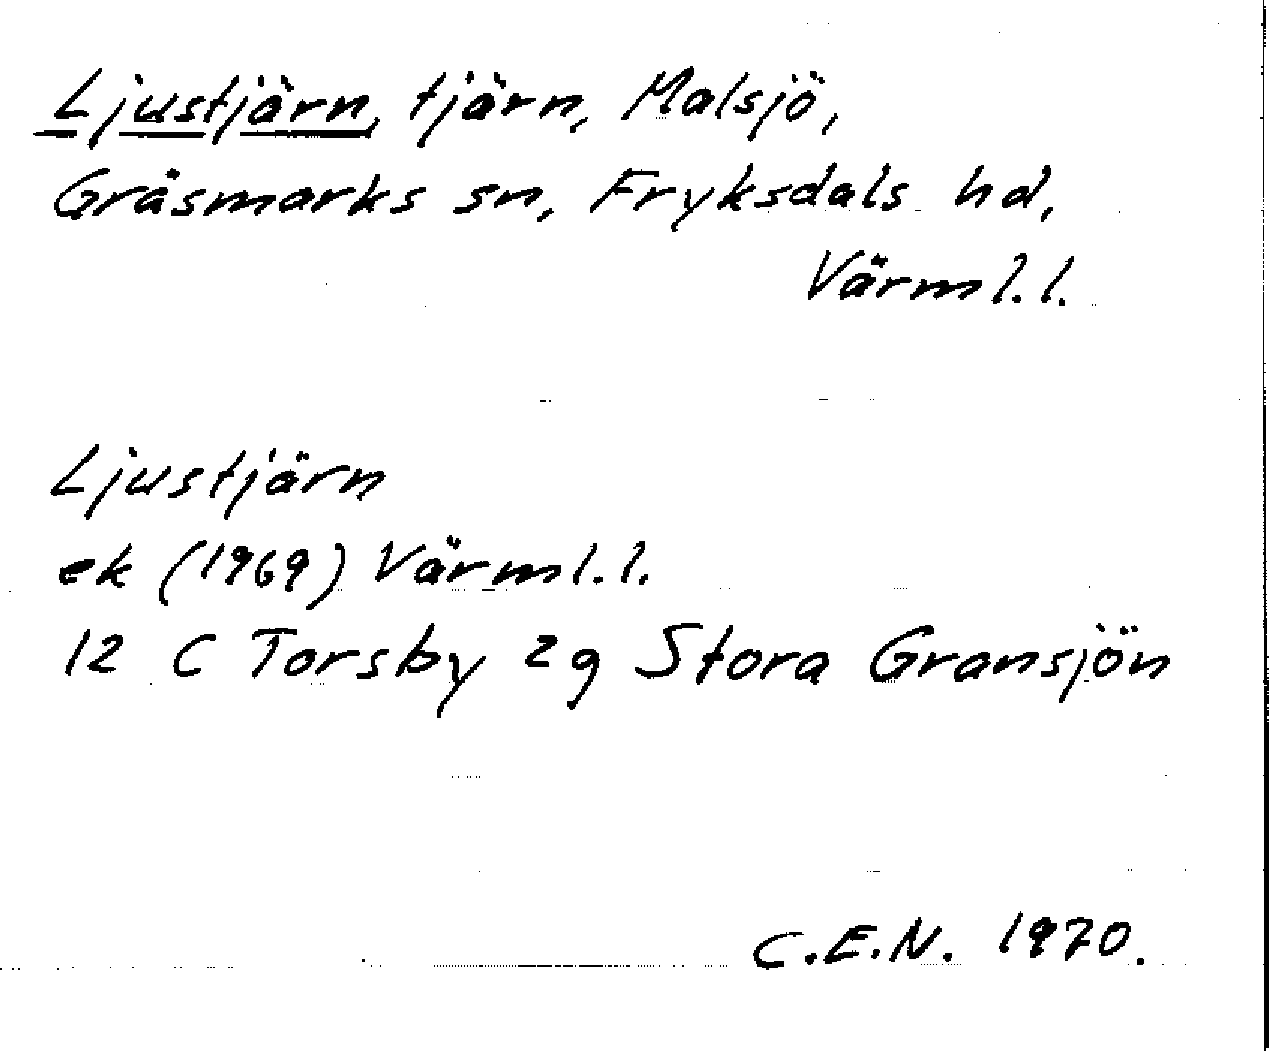 Ljustjärn, tjärn, Malsjö,
Gräsmarks sn, Fryksdals hd,
Värml.l.
Ljustjärn
ek (1969) Värml.l.
12 C Torsby 2g Stora Gransjön
C.E.N. 1970.